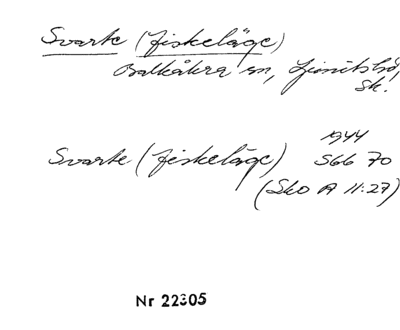 Svarte (fiskeläge)
Balkåkra sn, Ljunits hd,
Sk.
1944
Svarte (fiskeläge) S66 70
(Sko A 11:27)
Nr 22305